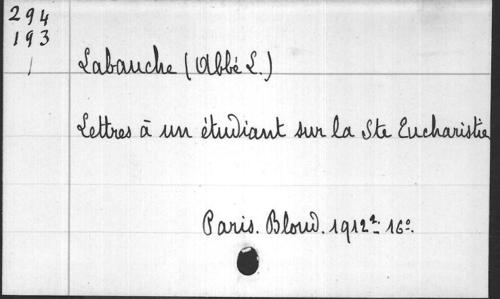 294
193
/
Labauche (Abbé L.)
Lettres à un étudiant sur la Ste Eucharistie
Paris. Bloud. 1912. 16º.